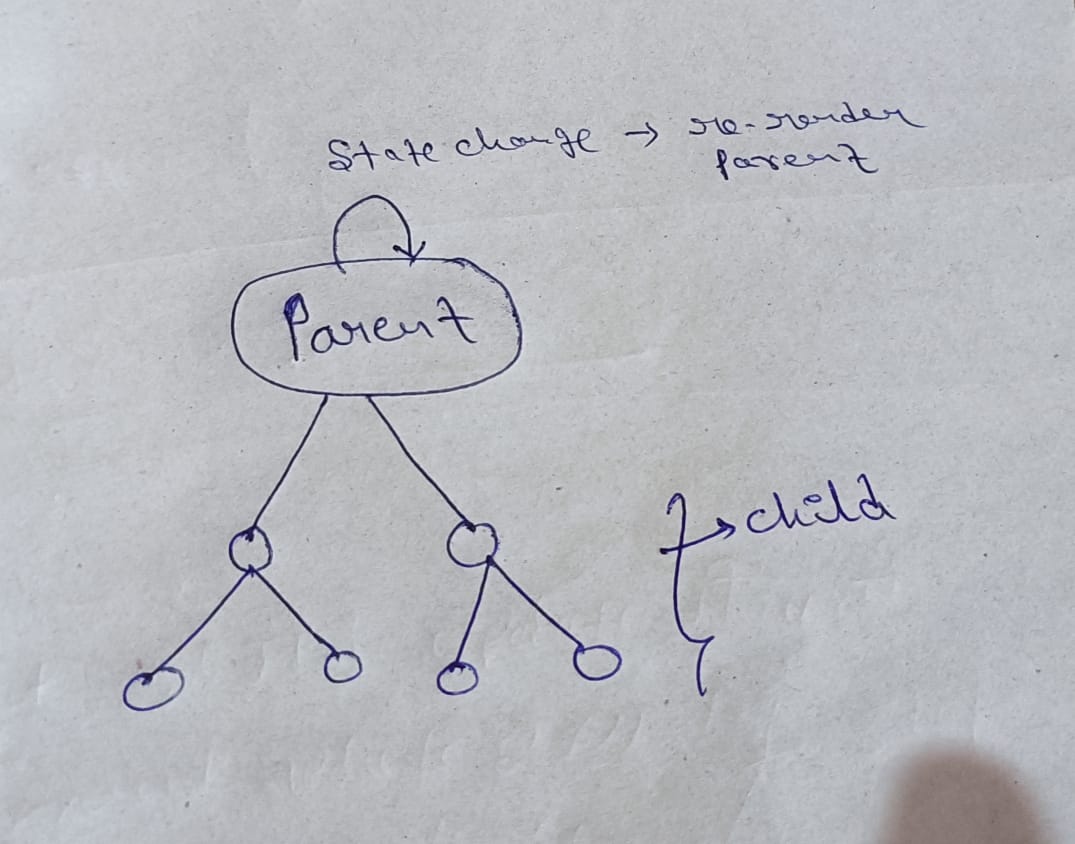 State change → re-render
parent
Parent
→ child